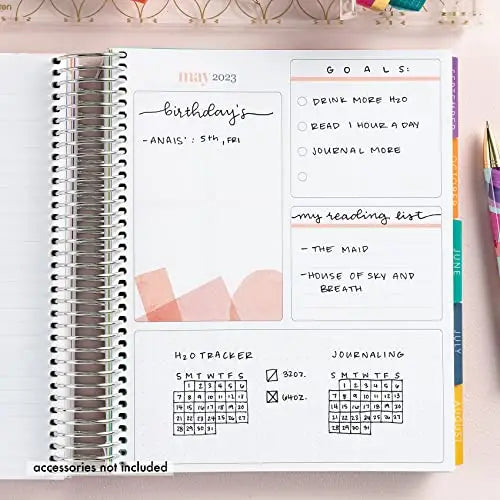 may 2023
birthday's
-ANAIS': 5th, FRI
GOALS:
DRINK MORE H2O
READ 1 HOUR A DAY
JOURNAL MORE
my reading list
- THE MAID
-HOUSE OF SKY AND
BREATH
H2O TRACKER
S M T W T F S
1 2 3 4 5 6
7 8 9 10 11 12 13
14 15 16 17 18 19 20
21 22 23 24 25 26 27
28 29 30 31
32OZ.
64OZ.
JOURNALING
S M T W T F S
1 2 3 4 5 6
7 8 9 10 11 12 13
14 15 16 17 18 19 20
21 22 23 24 25 26 27
28 29 30 31
SEPTEMBER
OCTOBER
JUNE
JULY
AUGUST
accessories not included